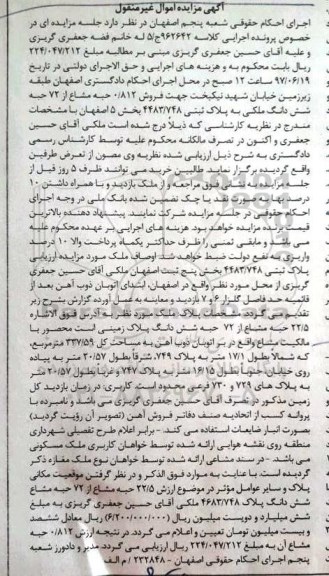 آگهی مزایده اموال غیرمنقول
اجرای احکام حقوقی شعبه پنجم اصفهان در نظر دارد جلسه مزایده ای در
خصوص پرونده اجرایی کلاسه ۹۶۲۶۴۲ج/۵ له خانم فضه جعفری گریزی
و علیه آقای حسین جعفری گریزی مبنی بر مطالبه مبلغ ۲۲۴/۰۴۷/۲۱۲
ریال بابت محکوم به و هزینه های اجرایی و حق الاجرای دولتی در تاریخ
۹۷/۰۶/۱۹ ساعت ۱۲ صبح در محل اجرای احکام دادگستری اصفهان طبقه
زیرزمین خیابان شهید نیکبخت جهت فروش ۰/۸۱۲ حبه مشاع از ۷۲ حبه
شش دانگ ملکی به پلاک ثبتی ۴۴۸۳/۷۴۸ بخش ۵ اصفهان با مشخصات
مندرج در نظریه کارشناسی که ذیلاً درج شده است ملکی آقای حسین
جعفری و اکنون در تصرف مالکانه محکوم علیه توسط کارشناس رسمی
دادگستری به شرح ذیل ارزیابی شده نظریه وی مصون از تعرض طرفین
واقع گردیده برگزار نماید طالبین خرید می توانند ظرف ۵ روز قبل از
جلسه مزایده به نشانی فوق مراجعه و از ملک بازدید و با همراه داشتن ۱۰
درصد بهاء به صورت نقد یا چک تضمین شده بانک ملی در وجه اجرای
احکام حقوقی در جلسه مزایده شرکت نمایند. پیشنهاد دهنده بالاترین
قیمت برنده مزایده خواهد بود. هزینه های اجرایی بر عهده محکوم علیه
می باشد و مابقی ثمنی را ظرف حداکثر یکماه پرداخت والا ۱۰ درصد
واریزی به نفع دولت ضبط خواهد شد. اوصاف ملک مورد مزایده ارزیابی
پلاک ثبتی ۴۴۸۳/۷۴۸ بخش پنج ثبت اصفهان ملکی آقای حسین جعفری
گریزی از محل مورد نظر واقع در اصفهان، ابتدای اتوبان ذوب آهن بعد از
قائمیه حد فاصل گلزار ۶ و ۷ بازدید و معاینه به عمل آورده گزارش بشرح زیر
تقدیم می گردد. مشخصات پلاک ملک مورد نظر به آدرس فوق الاشاره
۲۲/۵ حبه مشاع از ۷۲ حبه شش دانگ پلاک زمینی است محصور با
مالکیت مشاع واقع در بر اتوبان ذوب آهن به مساحت کل ۳۳۷/۵۹ مترمربع.
که شمالاً بطول ۱۷/۱ متر به پلاک ۷۴۹، شرقاً بطول ۲۰/۵۷ متر به پیاده
روی خیابان جنوباً بطول ۱۶/۱۵ متر به پلاک ۷۴۷ و غرباً بطول ۲۰/۵۷ متر
به پلاک های ۷۲۹ و ۷۳۰ فرعی محدود است. کاربری: در زمان بازدید کل
زمین مذکور در تصرف آقای حسین جعفری گریزی می باشد و نامبرده با
پروانه کسب از اتحادیه صنف دفاتر فروش آهن (تصویر آن رؤیت گردید)
بصورت انبار ضایعات استفاده می کند. - برابر اعلام طرح تفصیلی شهرداری
منطقه روی نقشه هوایی ارائه شده توسط خواهان کاربری ملک مسکونی
می باشد. - در سند مشاعی ارائه شده توسط خواهان نوع ملک مغازه ذکر
گردیده است با عنایت به موارد فوق الذکر و در نظر گرفتن موقعیت مکانی
پلاک و سایر عوامل مؤثر در موضوع ارزش ۲۲/۵ حبه مشاع از ۷۲ حبه مشاع
شش دانگ پلاک ۴۶۸۳/۷۴۸ ملکی آقای حسین جعفری گریزی به مبلغ
شش میلیارد و دویست میلیون ریال (۶/۲۰۰/۰۰۰/۰۰۰) ریال معادل ششصد
و بیست میلیون تومان تعیین و اعلام می گردد. در نتیجه ارزش ۰/۸۱۲ حبه
مشاع آن به مبلغ ۲۲۴/۰۴۷/۲۱۲ ریال ارزیابی می گردد. مدیر و دادورز شعبه
پنجم اجرای احکام حقوقی اصفهان ۲۳۲۸۴۸ / م الف